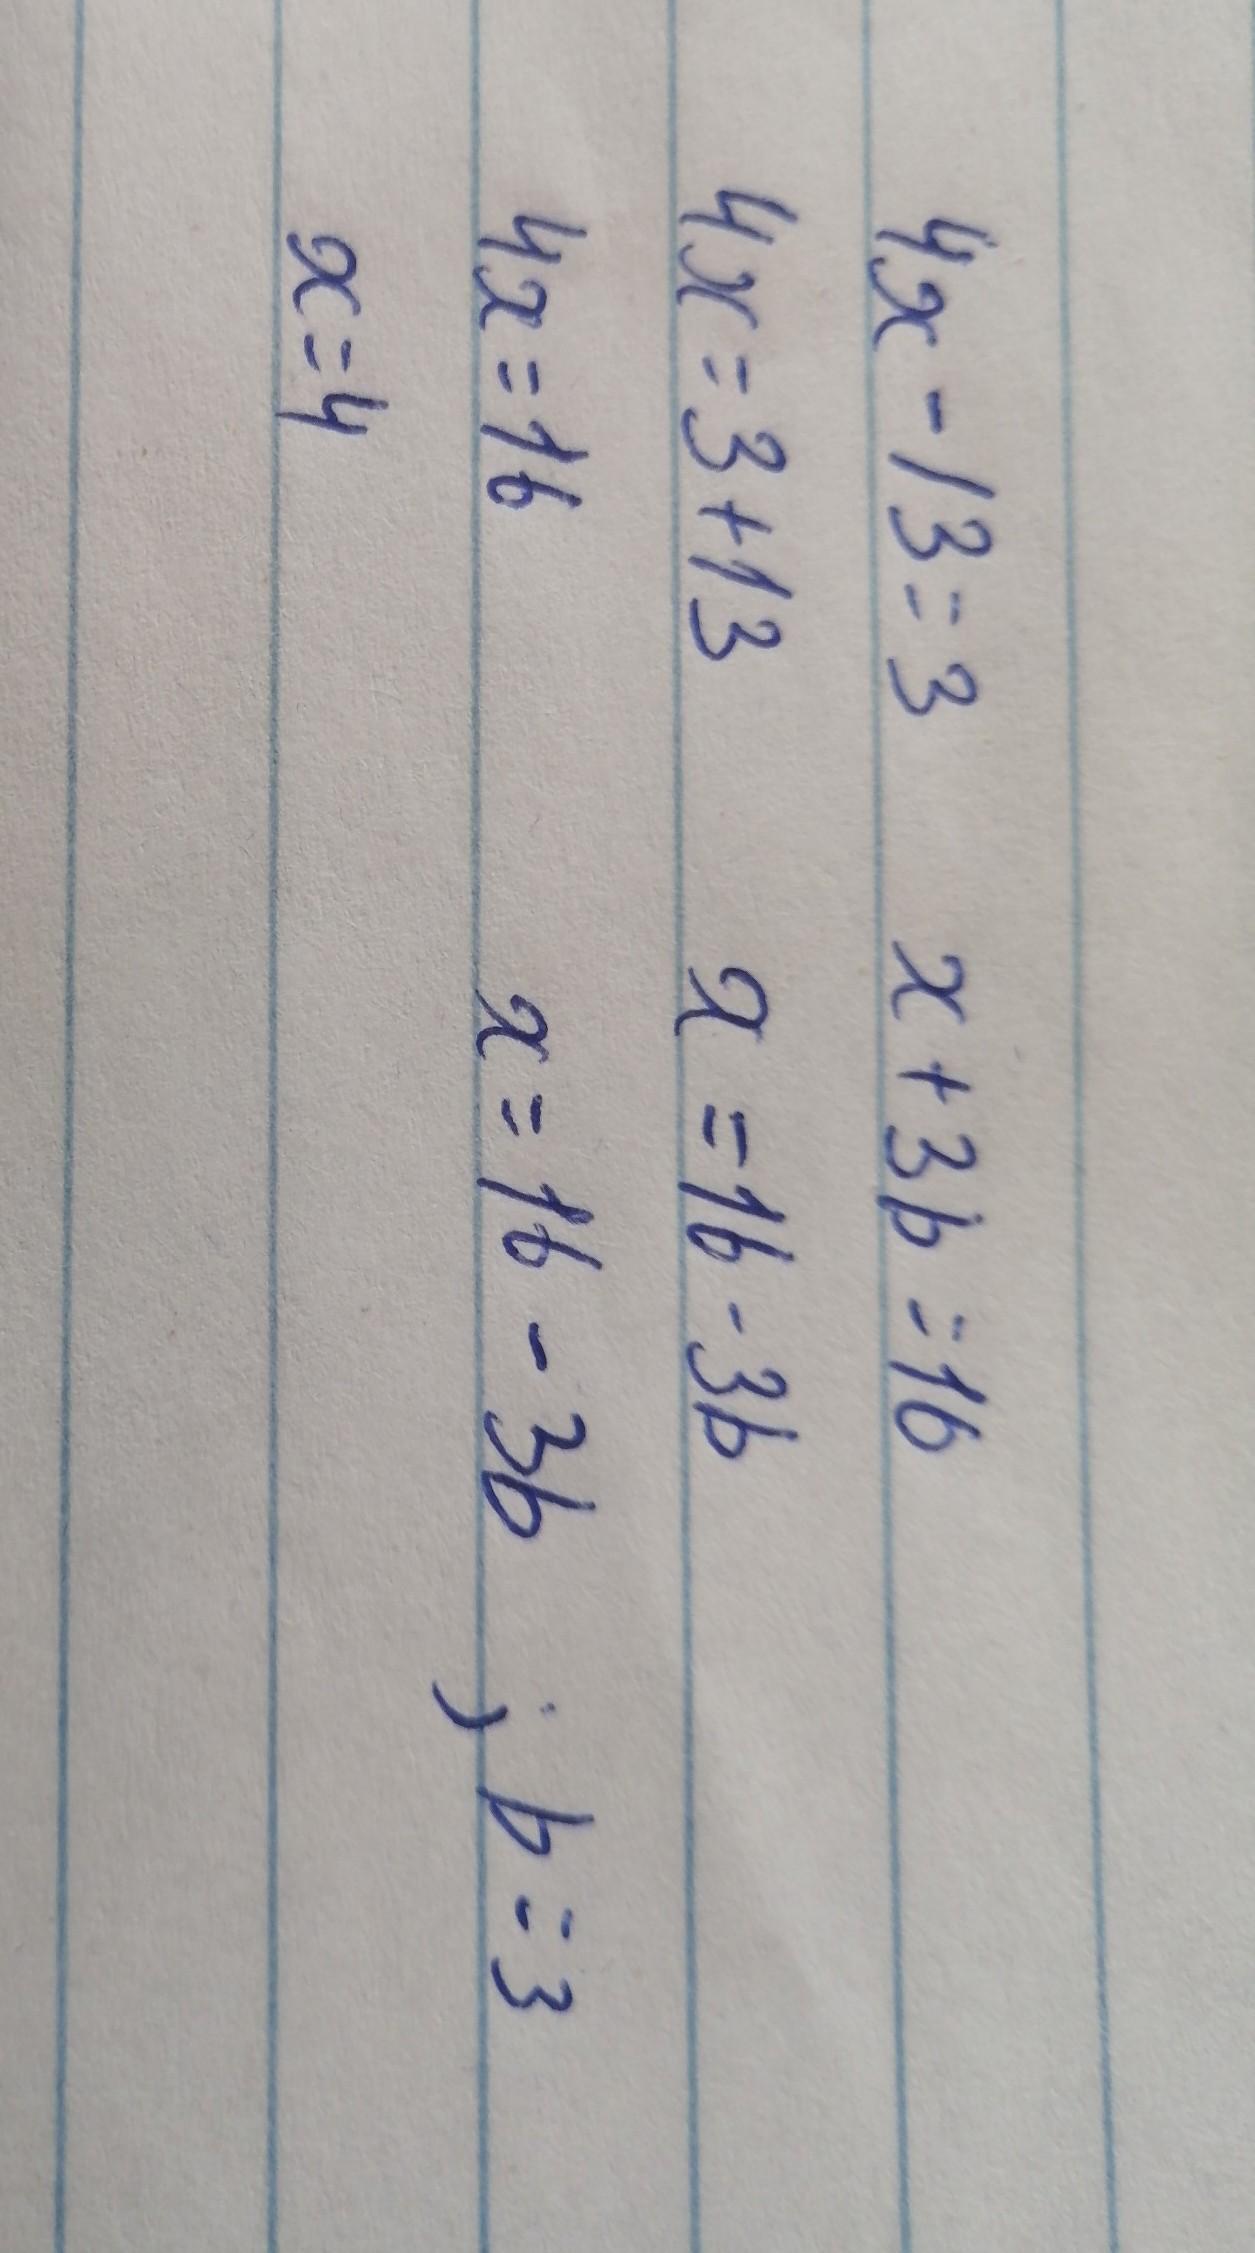 4x - 13 = 3 x + 3b = 16
4x = 3 + 13 x = 16 - 3b
4x = 16 x = 16 - 3b ; b = 3
x = 4